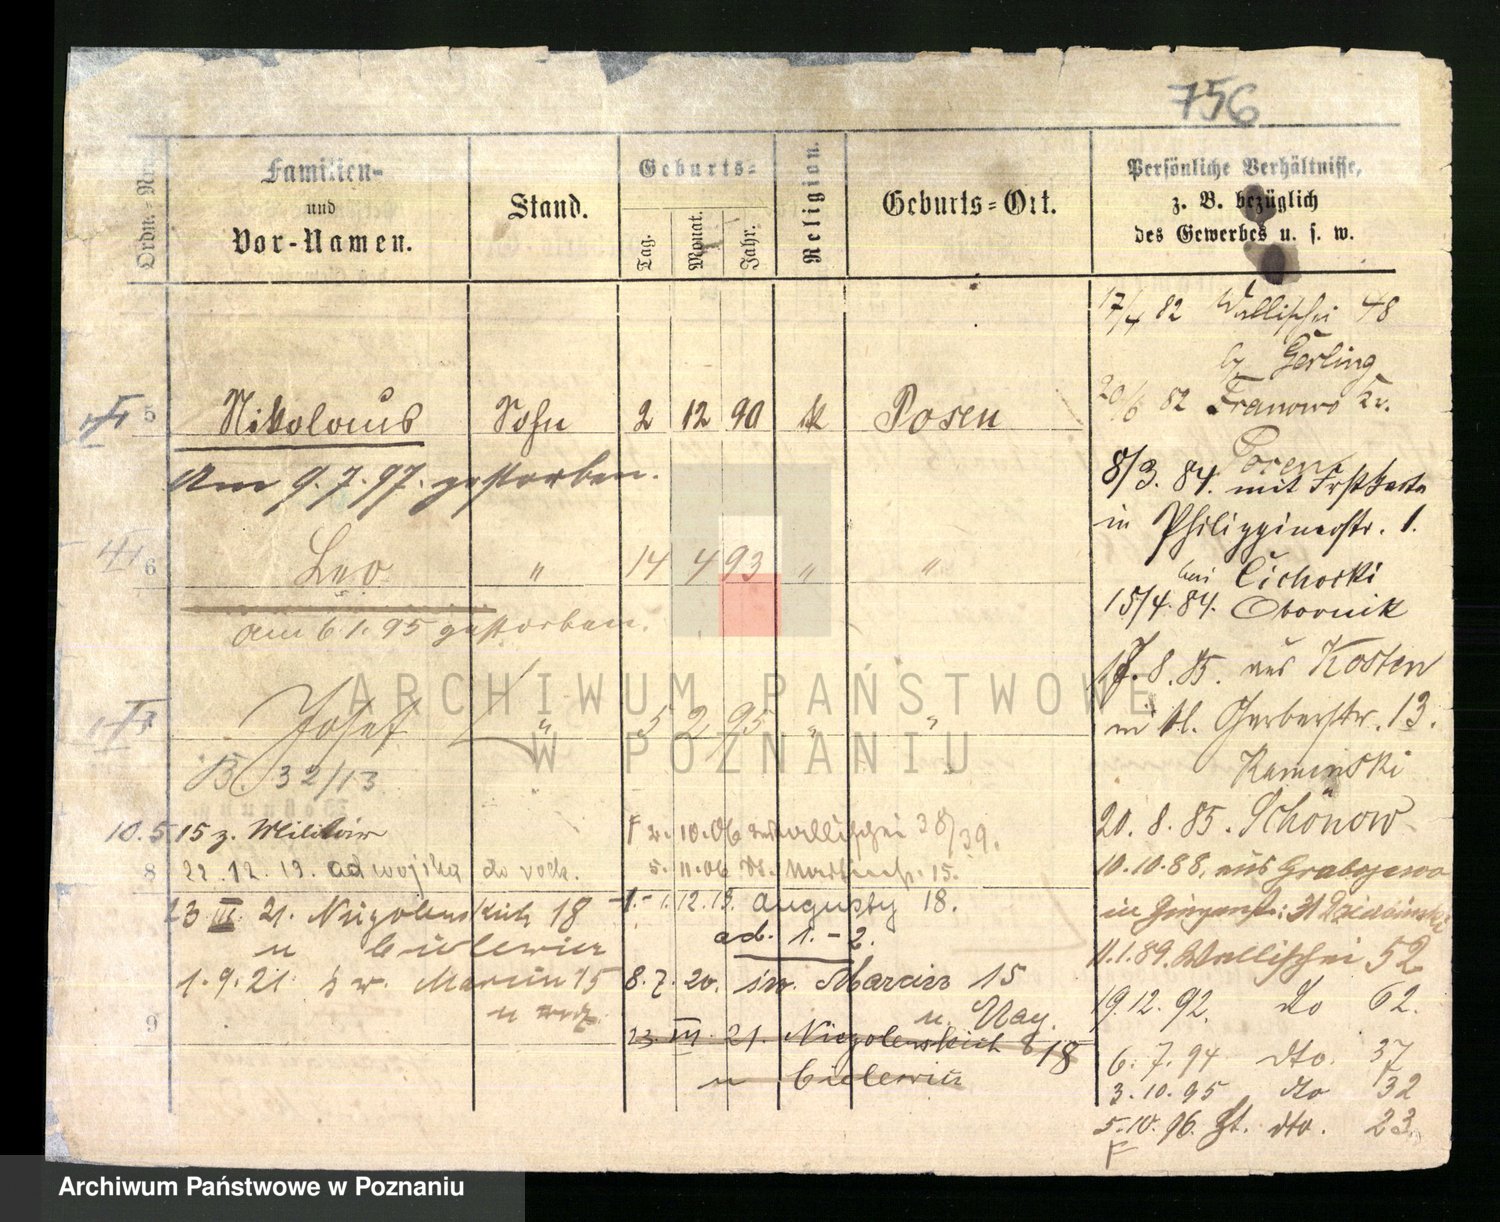 756
Ordn.-Nro.
Familien-
und
Vor-Namen.
Stand.
Geburts-
Tag.
Monat.
Jahr.
Religion.
Geburts-Ort.
Persönliche Verhältnisse,
z. B. bezüglich
des Gewerbes u. s. w.
17/4 82 Wallischei 48
by Gerling
20/6 82 Franowo Kr.
Posen
5 Nikolaus Sohn 2 12 90 k Posen
Am 9.7.97. gestorben.
8/3. 84. mit
in Philippinerstr. 1.
bei Cichocki
6 Leo " 14 4 93 " "
am 6.1.95 gestorben.
15/4. 84. Obornik
17.8.85. aus Kosten
in kl. Gerberstr. 13.
Kaminski
7 Josef " 5 2 95 " "
B. 32/13
20. 8. 85. Schönow
10.5.15 z. Militär
10.06 Wallischei 38/39.
8 22.12.19. ad wojska do
5. 11.06 15.
10.10.88. aus
in
23 III. 21. Niegolewskich 18
1.12.19. Augusty 18.
ad. 1.-2.
u Ćwlewicz
11.1.89. Wallischei 52
1.9.21. św. Marcin 15
8.7.20. św. Marcin 15
u. May.
19.12.92. do 62.
9
23 III 21. Niegolewskich 8 18
u
6. 7. 94 dto. 37
3. 10. 95 dto 32
5.10.96. dto. 23
ARCHIWUM PAŃSTWOWE
W POZNANIU
Archiwum Państwowe w Poznaniu